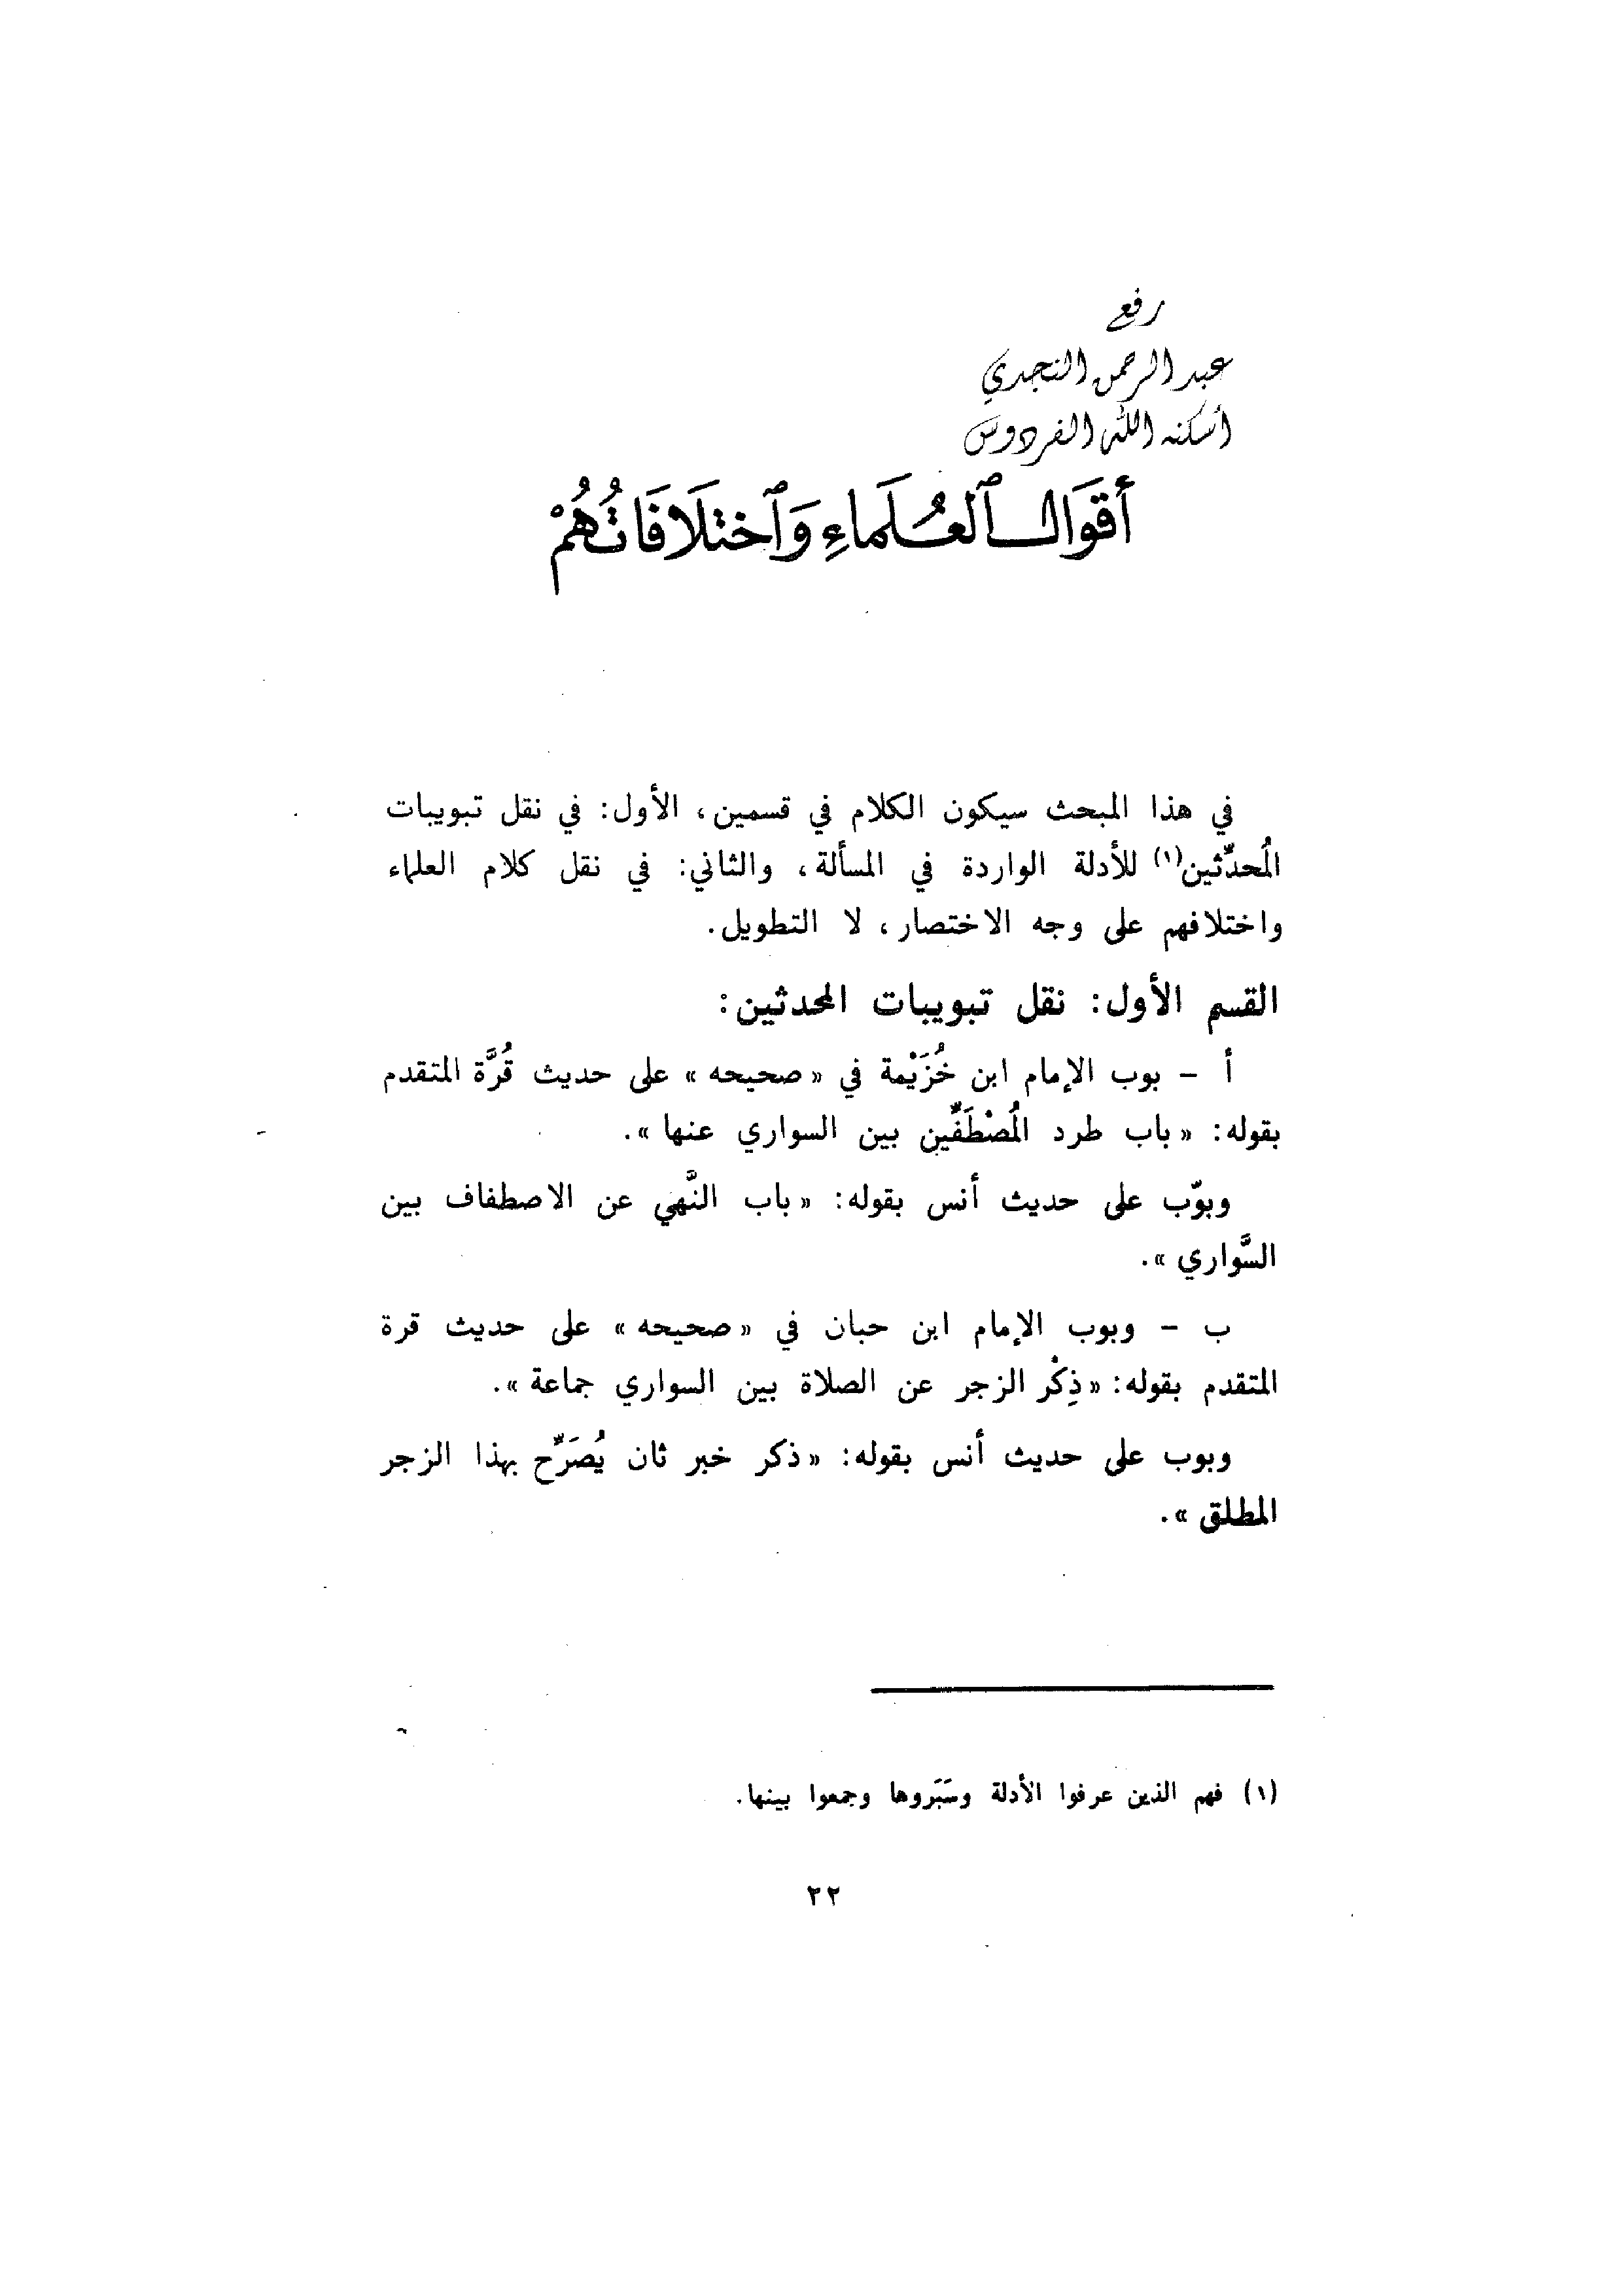 رفع
عبد الرحمن النجدي
أسكنه الله الفردوس
أَقوَالُ ٱلعُلَمَاءِ وَٱختِلَافَاتُهُمْ
في هذا المبحث سيكون الكلام في قسمين، الأول: في نقل تبويبات
المُحدّثين(١) للأدلة الواردة في المسألة، والثاني: في نقل كلام العلماء
واختلافهم على وجه الاختصار، لا التطويل.
القسم الأول: نقل تبويبات المحدثين:
أ – بوب الإمام ابن خُزَيْمة في « صحيحه » على حديث قُرَّة المتقدم
بقوله: « باب طرد المُصْطَفِّين بين السواري عنها ».
وبوّب على حديث أنس بقوله: « باب النَّهي عن الاصطفاف بين
السَّواري ».
ب – وبوب الإمام ابن حبان في « صحيحه » على حديث قرة
المتقدم بقوله: « ذِكْر الزجر عن الصلاة بين السواري جماعة ».
وبوب على حديث أنس بقوله: « ذكر خبر ثان يُصَرِّح بهذا الزجر
المطلق ».
(١) فهم الذين عرفوا الأدلة وسَبَروها وجمعوا بينها.
٢٢